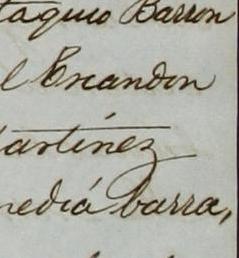 taquio Barron
l Escandon
artinez
media barra,